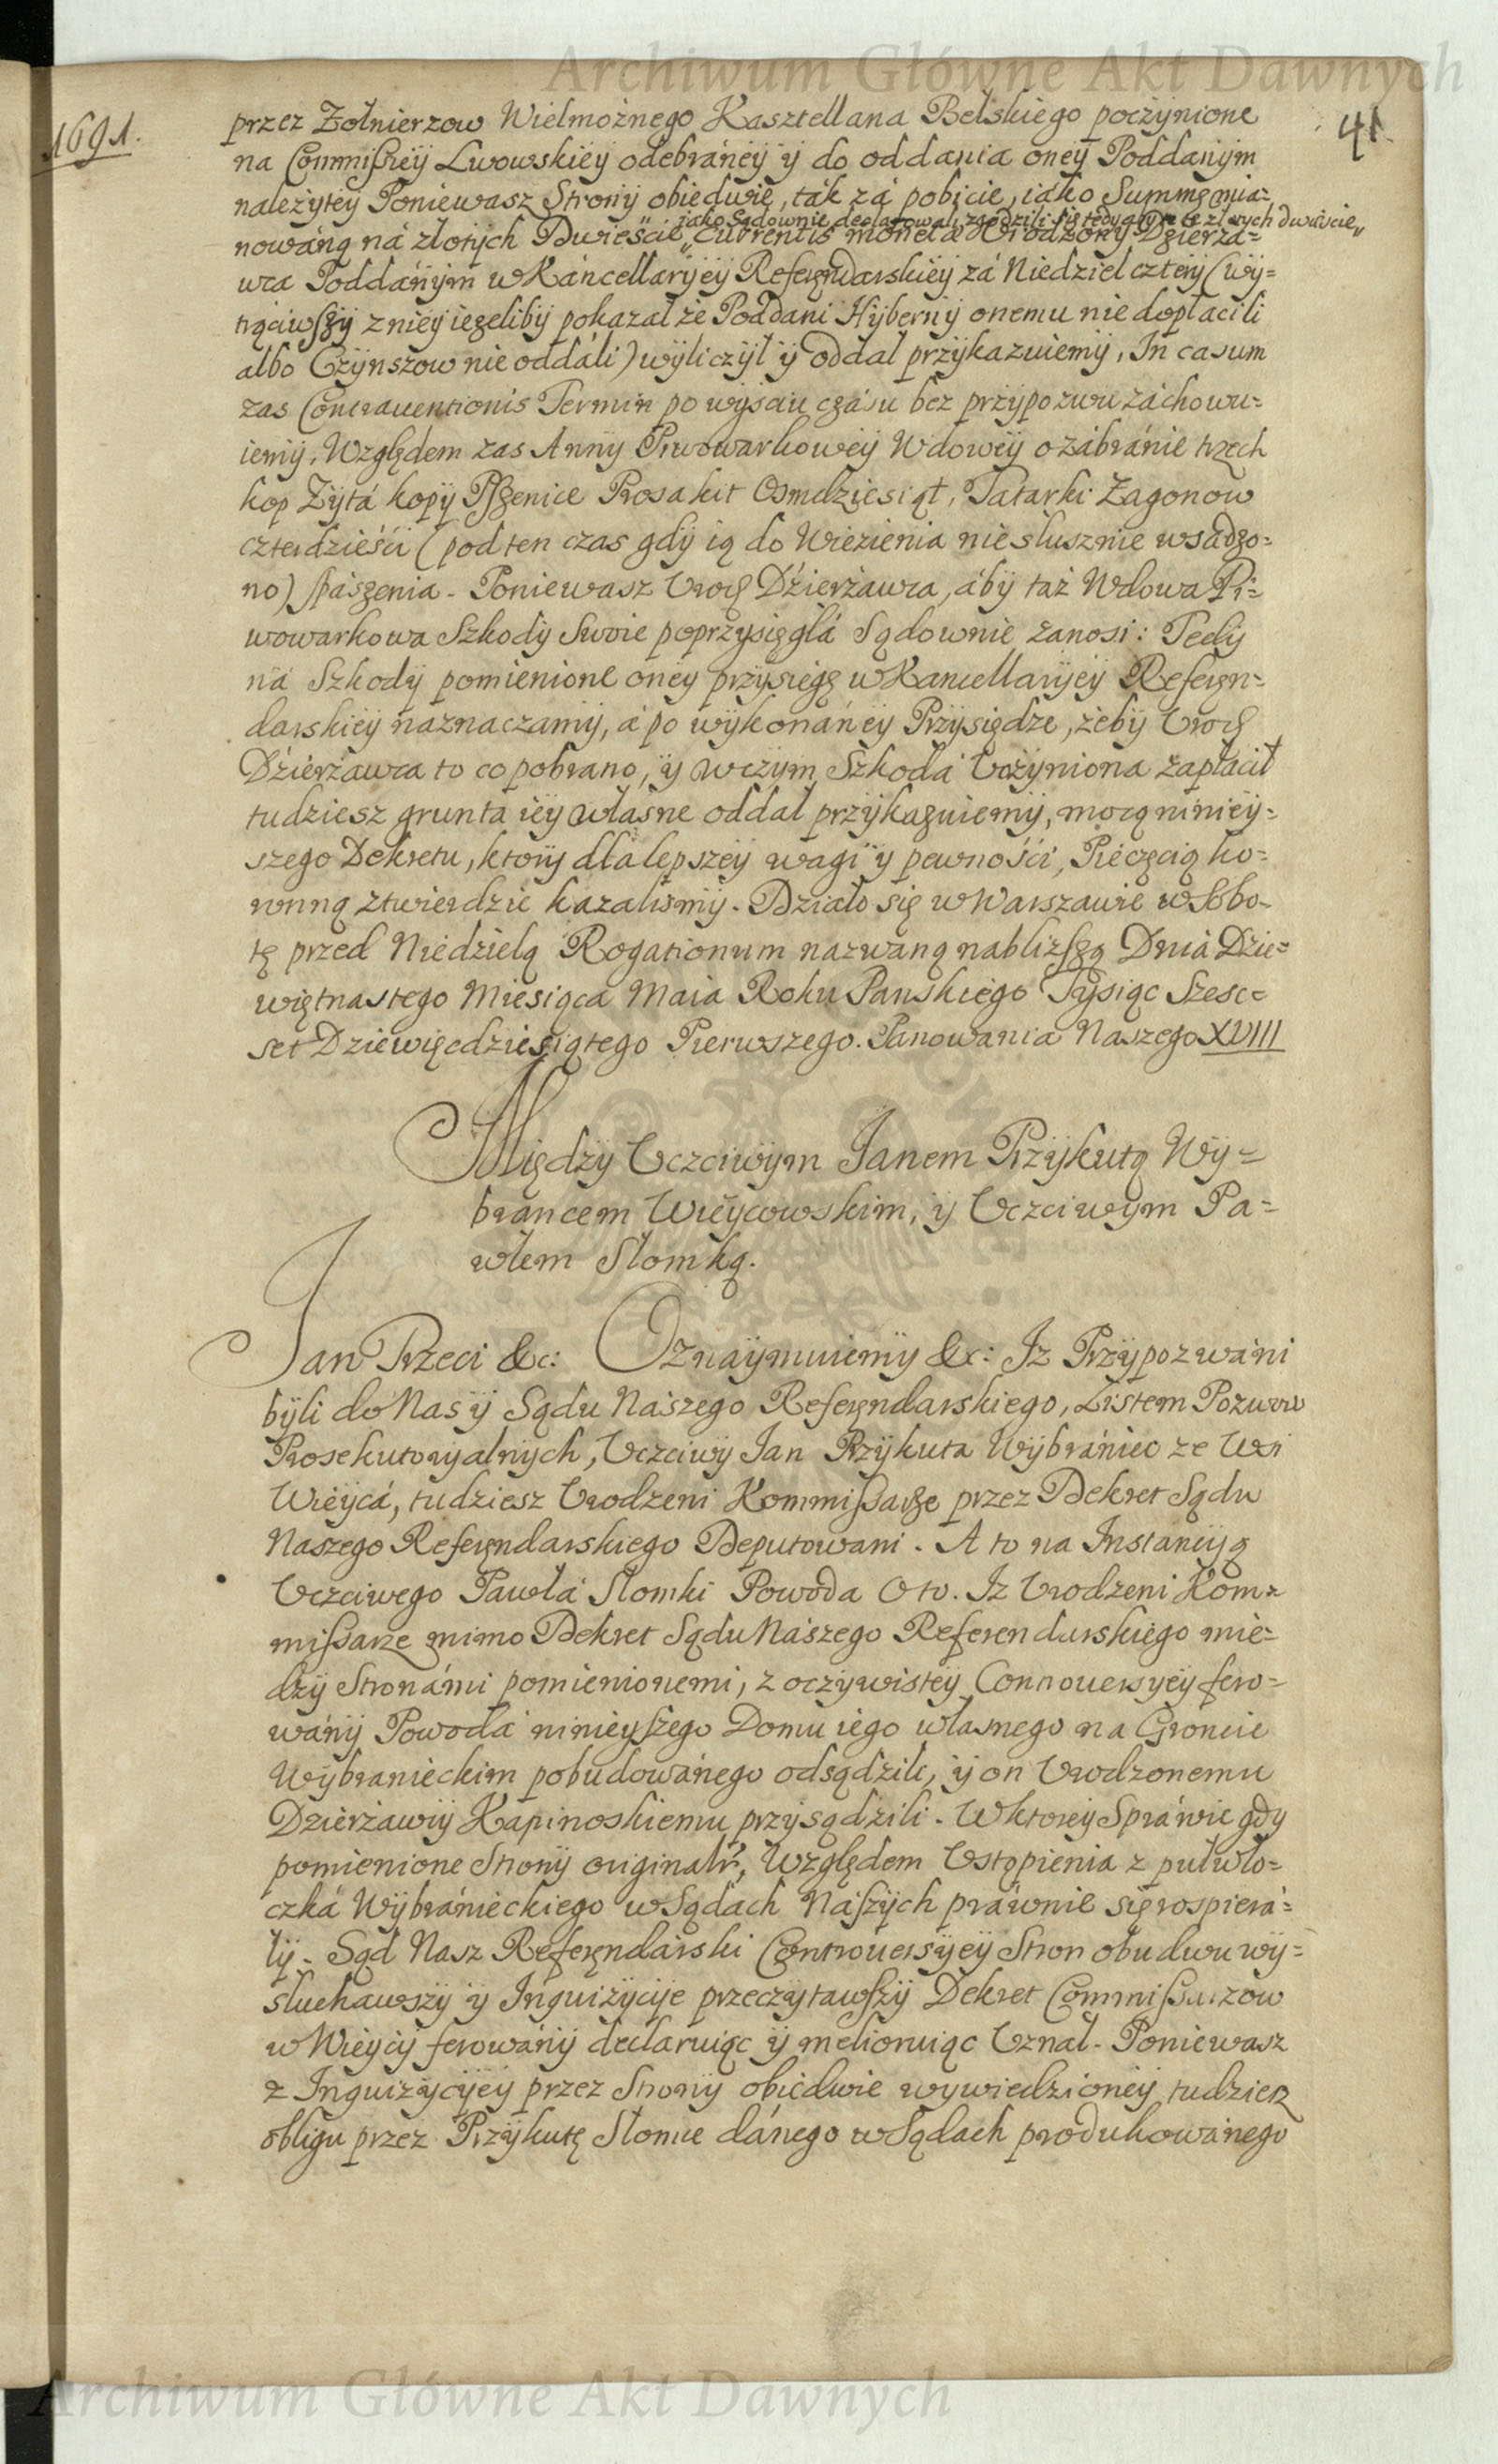 Archiwum Główne Akt Dawnych
1691.
41
przez Żołnierzow Wielmożnego Kasztellana Bełskiego poczÿnione
na Commißiéÿ Lwowskiéÿ odebránéÿ ÿ do oddania onéÿ Poddanÿm
należÿtéÿ Poniewasz Stronÿ obiedwie, ták zá pobicie, iáko Summę mia-
jako Sądownie declarowali, zgodzili się tedy aby te złotych dwáście„
nowáną ná złotÿch Dwieście„ Currentis moneta Vrodzonÿ Dzierza-
wca Poddánÿm w Káncellarÿéÿ Referęndarskiéÿ zá Niedziel czterÿ (wÿ-
trąciwſzÿ z niéÿ iezelibÿ pokazał że Poddani Hÿbernÿ onemu nie dopłacili
albo Czÿnszow nie oddáli) wÿliczÿł ÿ oddał przÿkazuiemÿ, In casum
zas Contrauentionis Termin po wÿściu czásu bez przÿpozwu záchowu-
iemÿ. Względem zas Annÿ Piwowarkowéÿ Wdowéÿ o zábránie trzech
kop Żÿtá kopÿ Pſzenice Prosa kit Osmdziesiąt, Tatarki Zagonow
czterdzieści (pod ten czas gdÿ ią do Więzienia niesłusznie wsadzo-
no) spászenia. Poniewasz Vrodz Dźierżawca, ábÿ taż Wdowa Pi-
wowarkowa Szkodÿ Swoie poprzÿsięgłá Sądownie zanosi: Tedÿ
ná Szkodÿ pomienione onéÿ przÿsięgę w Kancellarÿéÿ Referęn-
darskiéÿ naznaczamÿ, á po wÿkonánéÿ Przÿsiędze, żebÿ Vrodz
Dźierżawca to co pobrano, ÿ w czÿm Szkodá Vczÿniona zapłácił
tudziesz grunta iéÿ własne oddał przÿkazuiemÿ, mocą niniéÿ-
szego Dekretu, ktorÿ dla lepszéÿ wagi ÿ pewności, Pieczęcią ko-
ronną ztwierdzić kazalismÿ. Działo się w Warszawie w Sobo-
tę przed Niedzielą Rogationum nazwaną nabliżſzą Dniá Dzie-
więtnastego Miesiąca Maia Roku Panskiego Tÿsiąc Szesc-
set Dziewięcdziesiątego Pierwszego. Panowania Naszego XVIII
Międzÿ Vczciwÿm Janem Przÿkutą Wÿ-
brancem Wieÿcowskim, ÿ Vczciwÿm Pa-
włem Słomką.
Jan Trzeci &c: Oznaÿmuiemÿ &c: Iz Przÿpozwáni
bÿli do Nas ÿ Sądu Naszego Referęndarskiego, Listem Pozwu
Prosekutorÿalnÿch, Vczciwÿ Jan Przÿkuta Wÿbrániec ze Wsi
Wieÿcá, tudziesz Vrodzeni Kommißarze przez Dekret Sądu
Naszego Referęndarskiego Deputowani. A to na Instancÿą
Vczciwego Pawłá Słomki Powoda Oto. Iz Vrodzeni Kom-
mißarze mimo Dekret Sądu Naszego Referendarskiego mie-
dzÿ Stronámi pomienionemi, z oczÿwistéÿ Controuersÿéÿ fero-
wánÿ Powodá ninieÿſzego Domu iego własnego na Groncie
Wÿbranieckim pobudowánego odsądzili, ÿ on Vrodzonemu
Dzierżawÿ Kapinoskiemu przÿsądzili. W ktoréÿ Spráwie gdÿ
pomienione Stronÿ originalr, Względem Vstąpienia z pułwło-
czká Wÿbránieckiego w Sądach Naſzÿch práwnie się rospierá-
łÿ. Sąd Nasz Referęndárski Controuersÿéÿ Stron obudwu wÿ-
słuchawszÿ ÿ Inquizÿcÿe przeczÿtawſzÿ Dekret Commißarzow
w Wieÿcÿ ferowánÿ declaruiąc ÿ melioruiąc Vznał. Poniewasz
z Inquizÿcÿéÿ przez Stronÿ obiedwie wywiedzionéÿ, tudziesz
obligu przez Przÿkutę Słomce dánego w Sądach produkowánego
Archiwum Główne Akt Dawnych